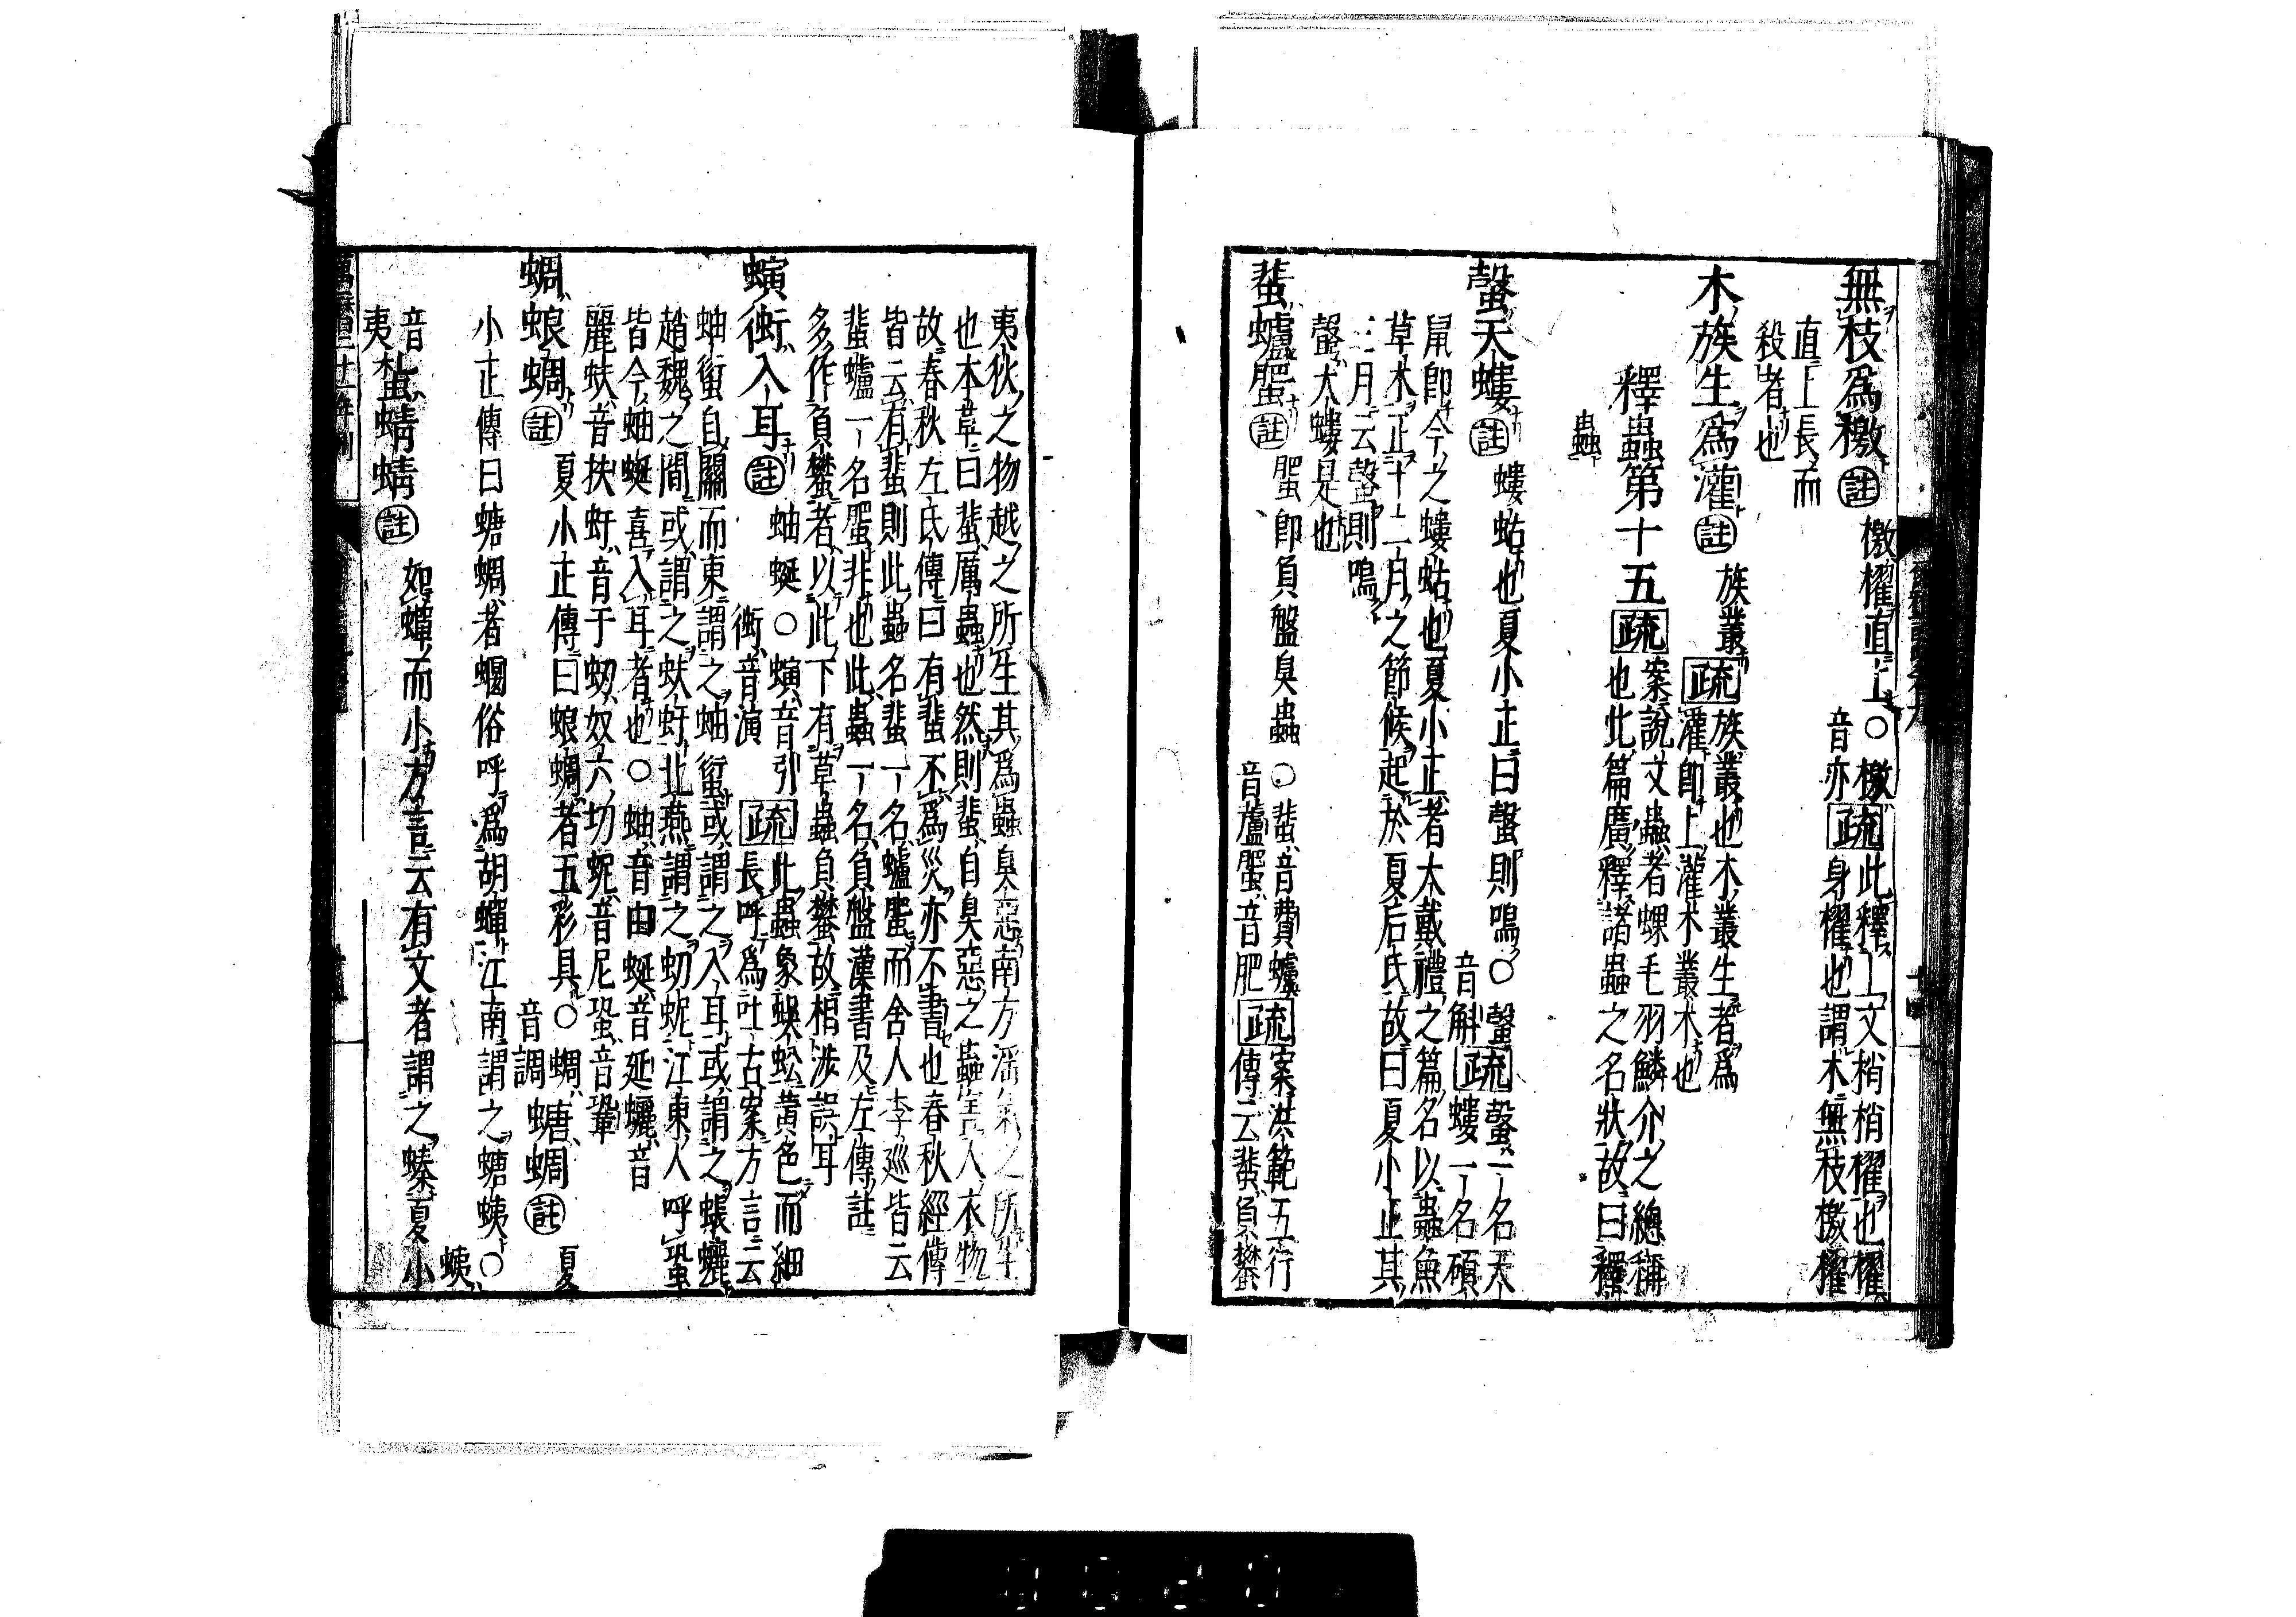 無枝爲檄註檄櫂直上○檄音亦疏此釋上文梢梢櫂也櫂身櫂也謂木無枝檄櫂
直上長而
殺者也
木族生爲灌註族叢疏族叢也木叢生者爲灌即上灌木叢木也
釋蟲第十五疏案說文蟲者蜾毛羽鱗介之總稱也此篇廣釋諸蟲之名狀故曰釋
蟲
螜天螻註螻蛄也夏小正曰螜則鳴○螜音斛疏螜一名天螻一名碩
鼠即今之螻蛄也夏小正者大戴禮之篇名以蟲魚
草木正十二月之節候起於夏后氏故曰夏小正其
三月云螜則鳴
螜大螻是也
蜚蠦蜰註蜰即負盤臭蟲○蜚音費蠦音蘆蜰音肥疏案洪範五行傳云蜚負蠜
夷狄之物越之所生其爲蟲臭惡南方淫氣之所生
也本草曰蜚厲蟲也然則蜚自臭惡之蟲害人衣物
故春秋左氏傳曰有蜚不爲災亦不書也春秋經傳
皆云有蜚則此蟲名蜚一名蠦蜚而舍人李巡皆云
蜚蠦一名蜰非也此蟲一名負盤漢書及左傳註
多作負蠜者以此下有草蟲負蠜故相涉誤耳
螾衝入耳註蚰蜒○螾音引衝音演疏此蟲象蜈蚣黃色而細長呼爲吐古案方言云
蚰蜒自關而東謂之蚰蜒或謂之入耳或謂之蜄蠷
趙魏之間或謂之蚨虶北燕謂之䖡蚭江東人呼蛩
皆今蚰蜒喜入耳者也○蚰音由蜒音延蠷音
麗蚨音扶虶音于䖡奴六切蚭音尼蛩音鞏
蜩蜋蜩註夏小正傳曰蜋蜩者五彩具○蜩音調螗蜩註夏
小正傳曰螗蜩者蝘俗呼爲胡蟬江南謂之螗蛦○蛦
音
夷蚻蜻蜻註如蟬而小方言云有文者謂之螓夏小